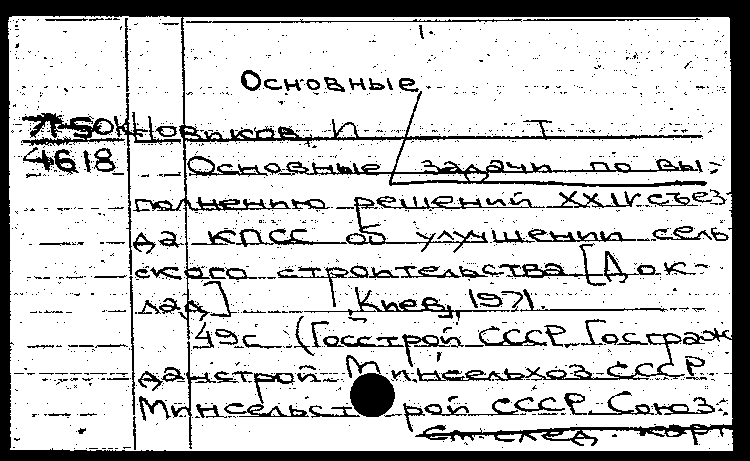 1.
Основные
Л-50К Новиков, И Т
4618 Основные задачи по вы-
полнению решений XXIV съез-
да КПСС об улучшении сель
ского строительства [Док-
лад] , Киев, 1971.
49с (Госстрой СССР. Госграж
данстрой. Минсельхоз СССР
Минсельстрой СССР. Союз-
См. след. карт